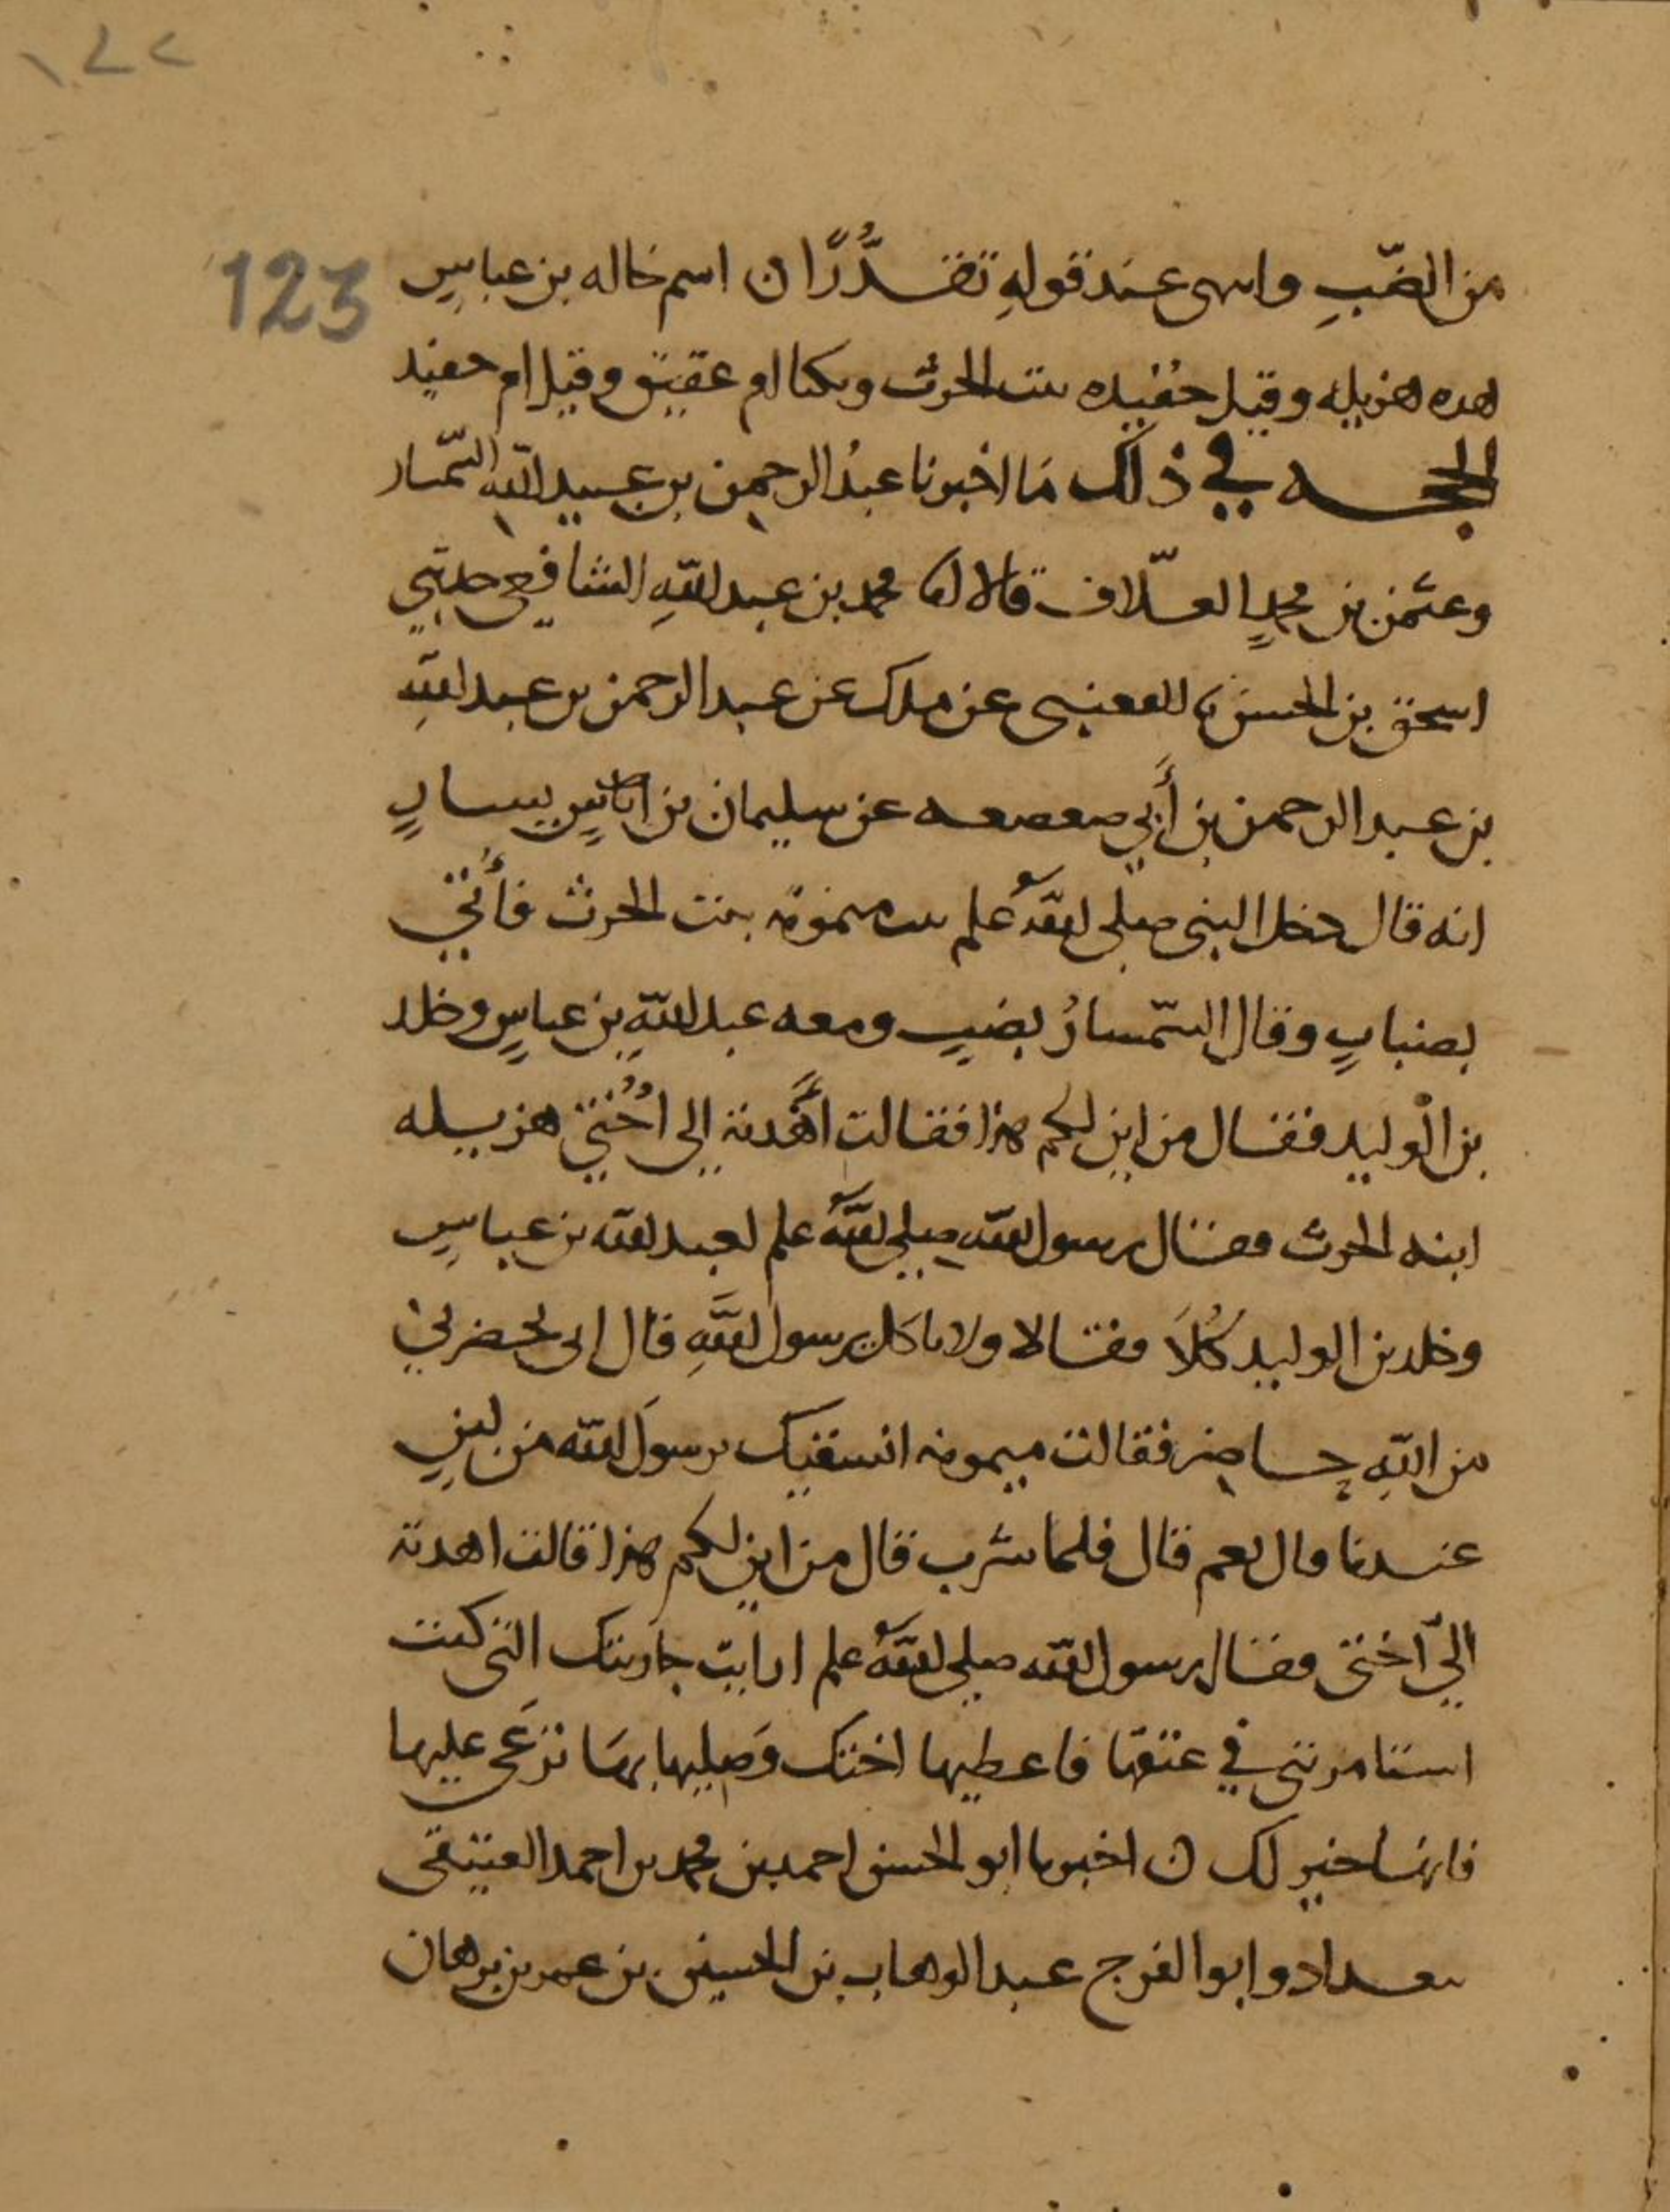 ١٢٢
123
من الضب وانتهى عند قوله تقذرا ن اسم خاله بن عباس
هده هزيله وقيل حفيده بنت الحرث وتكنا ام عقيق وقيل ام حفيد
الحجه في ذلك ما اخبرنا عبد الرحمن بن عبيد الله السمسار
وعثمن بن محمد العلاف قالا محمد بن عبد الله الشافعي حدثني
اسحق بن الحسن القعنبي عن ملك عن عبد الرحمن بن عبد الله
بن عبد الرحمن بن أبي صعصعه عن سليمان بن يسار
انه قال دخل النبي صلى الله علم بيت ميمونة بنت الحرث فأتي
بضباب وقال السمسار بضب ومعه عبد الله بن عباس وخلد
بن الوليد فقال من اين لكم هذا فقالت أهدته إلى أختي هزيله
ابنه الحرث فقال رسول الله صلى الله علم لعبد الله بن عباس
وخلد بن الوليد كلا فقالا ولا تاكل يرسول الله قال اني يحضرني
من الله حاضر فقالت ميمونه انسقيك يرسول الله من لبن
عندنا قال نعم قال فلما شرب قال من اين لكم هذا قالت اهدته
الي اختي فقال رسول الله صلى الله علم ارايت جاريتك التي كنت
استامرتني في عتقها فاعطيها اختك وصليها بها ترعى عليها
فانها خير لك ن اخبرنا ابو الحسن احمد بن محمد بن احمد العتيقي
ببغداد وابو الفرج عبد الوهاب بن الحسين بن عمر بن برهان